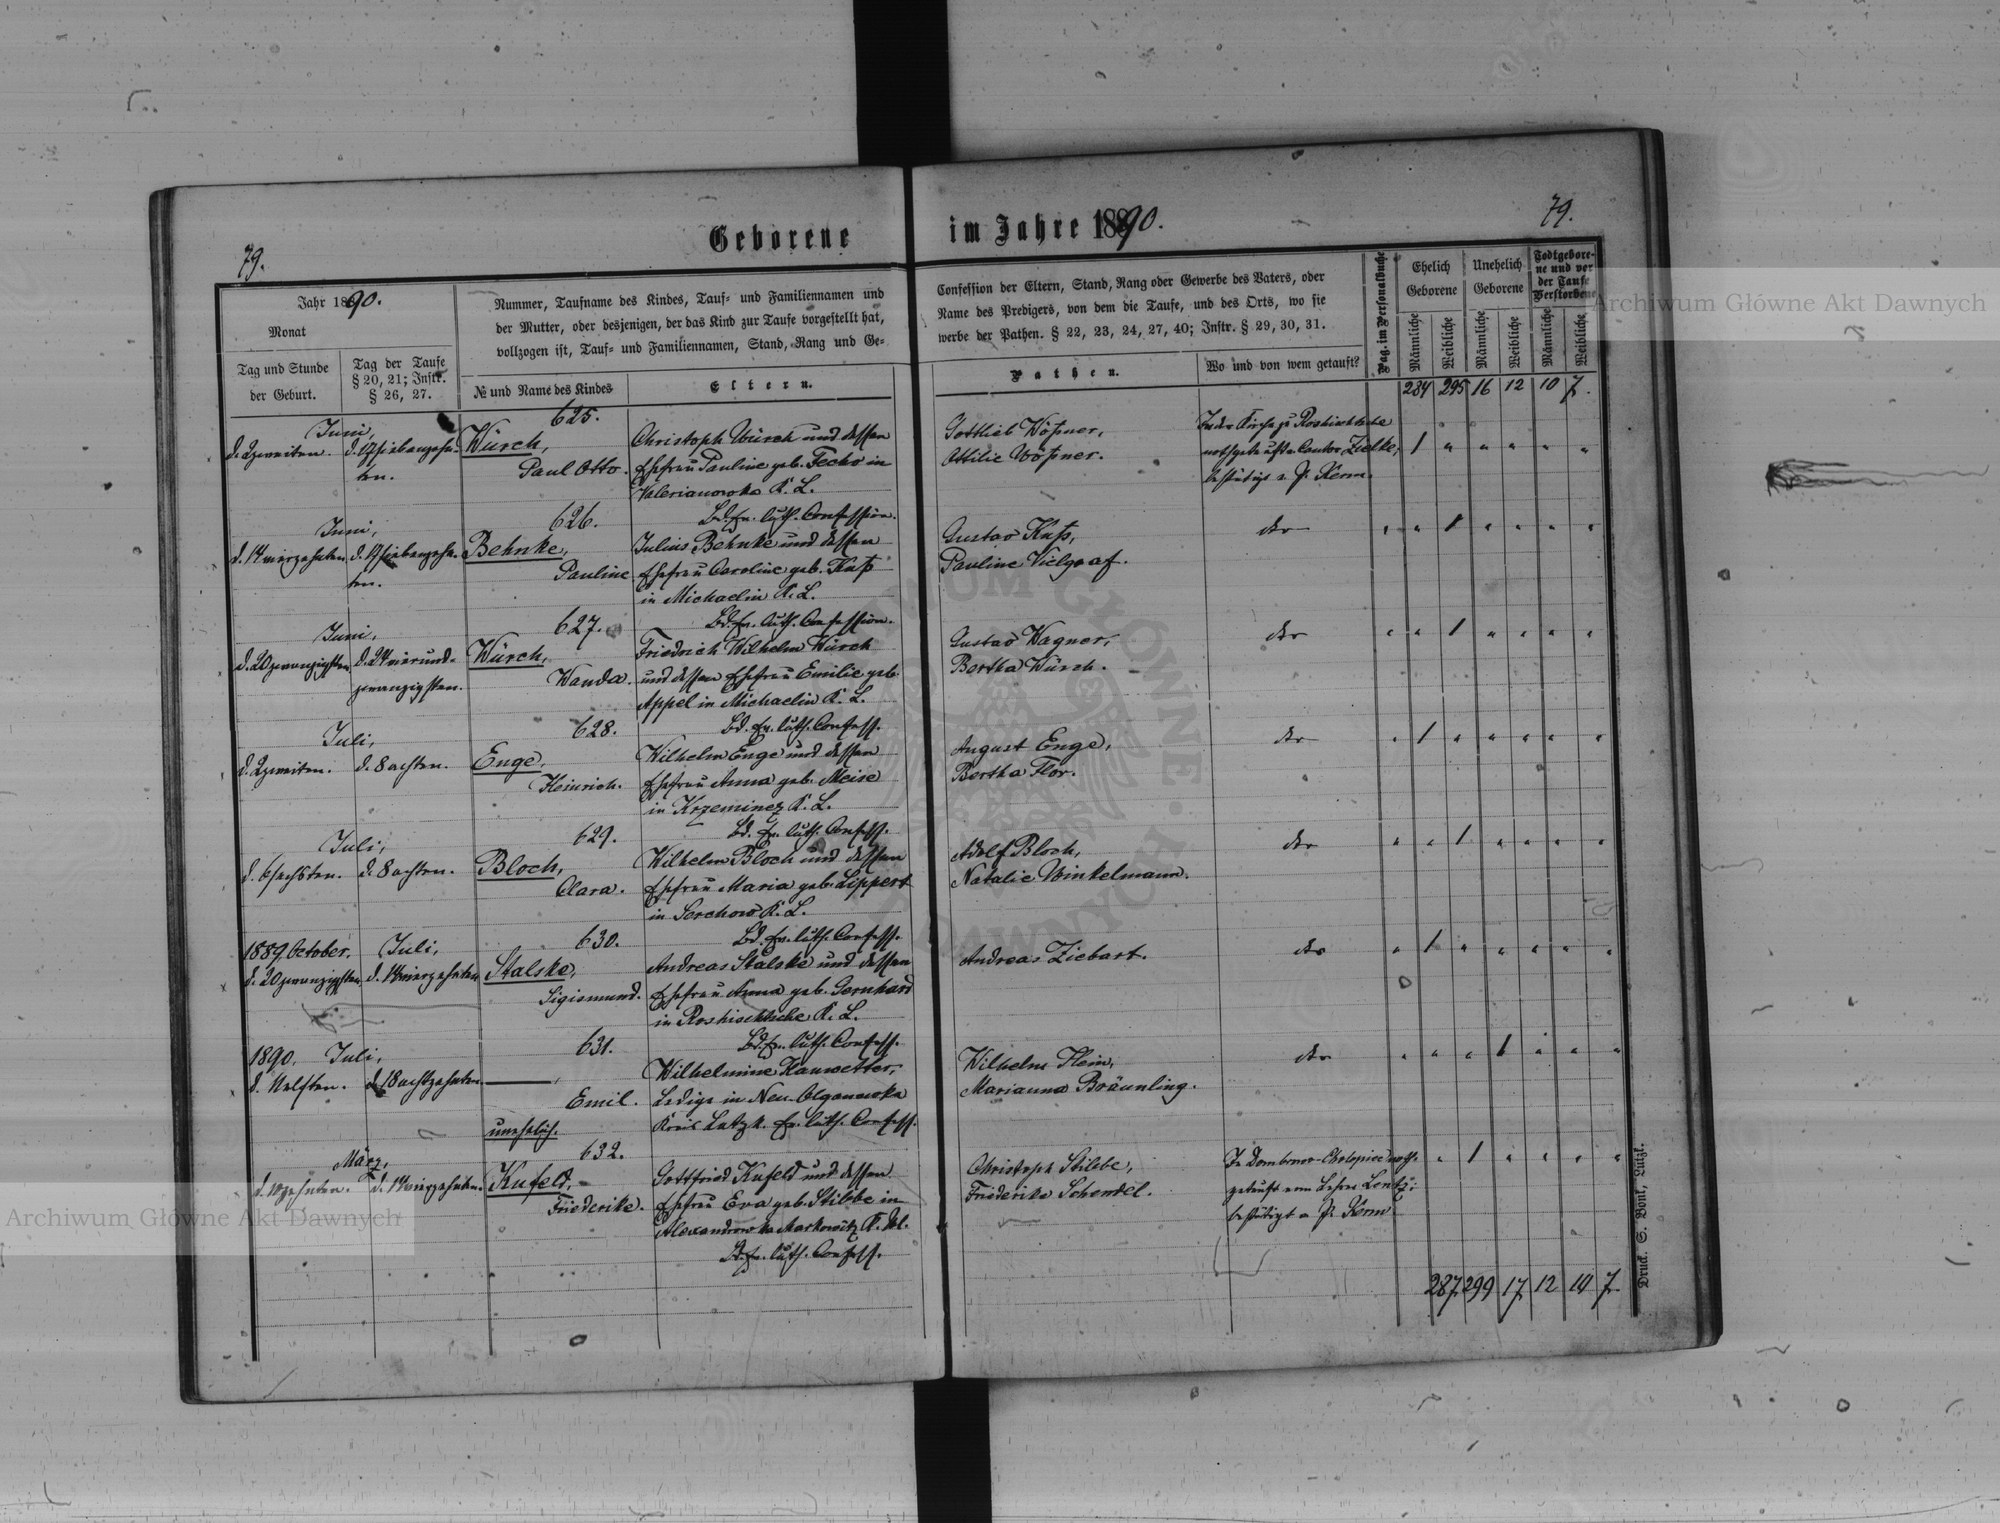 79.
Geborene
im Jahre 1890.
79.
Jahr 1890.
Monat
Tag und Stunde
der Geburt.
Tag der Taufe
§ 20, 21; Instr.
§ 26, 27.
Nummer, Taufname des Kindes, Tauf- und Familiennamen und
der Mutter, oder desjenigen, der das Kind zur Taufe vorgestellt hat,
vollzogen ist, Tauf- und Familiennamen, Stand, Rang und Ge-
№ und Name des Kindes
Eltern.
Confession der Eltern, Stand, Rang oder Gewerbe des Vaters, oder
Name des Predigers, von dem die Taufe, und des Orts, wo sie
werbe der Pathen. § 22, 23, 24, 27, 40; Instr. § 29, 30, 31.
Pathen.
Wo und von wem getauft?
Pag. im Personalbuche
Ehelich
Geborene
Unehelich
Geborene
Todtgebore-
ne und vor
der Taufe
Verstorbene
Männliche
Weibliche
Männliche
Weibliche
Männliche
Weibliche
284 295 16 12 10 7.
Juni,
d. 2 zweiten. d. 17 siebenzehn-
ten.
625.
Würch,
Paul Otto.
Christoph Würch und dessen
Ehefrau Pauline geb. Fechs in
Valerianowka K. L.
Bd. Ev. luth. Confession.
Gottlieb Wößner,
Ottilie Wößner.
In der Kirche zu Roshischtsche
nothgetauft v. Cantor Zielke;
bestätigt v. P. Kerm.
Juni,
d. 14 vierzehnten d. 17 siebenzehn-
ten.
626.
Behnke,
Pauline
Julius Behnke und dessen
Ehefrau Caroline geb. Kuß
in Michaelin K. L.
Bd. Ev. luth. Confession.
Gustav Kuß,
Pauline Vielgraf.
Juni,
d. 20 zwanzigsten d. 24 vierund-
zwanzigsten.
627.
Würch,
Wanda.
Friedrich Wilhelm Würch
und dessen Ehefrau Emilie geb.
Appel in Michaelin K. L.
Bd. Ev. luth. Confess.
Gustav Wagner,
Bertha Würch.
Juli,
d. 2 zweiten. d. 8 achten.
628.
Enge,
Heinrich.
Wilhelm Enge und dessen
Ehefrau Anna geb. Meise
in Krzeminez K. L.
Bd. Ev. luth. Confess.
August Enge,
Bertha Flor.
Juli,
d. 6 sechsten. d. 8 achten.
629.
Bloch,
Clara.
Wilhelm Bloch und dessen
Ehefrau Maria geb. Lippert
in Serchow K. L.
Bd. Ev. luth. Confess.
Adolf Bloch,
Natalie Winkelmann.
1889 October. Juli,
d. 20 zwanzigsten d. 14 vierzehnten
630.
Stalske,
Sigismund.
Andreas Stalske und dessen
Ehefrau Anna geb. Gernhard
in Roshischtsche K. L.
Bd. Ev. luth. Confess.
Andreas Ziebart.
1890. Juli,
d. 11 elften. d. 18 achtzehnten
631.
Emil.
unehelich.
Wilhelmine Hauwetter,
Ledige in Neu-Olganowka
Kreis Lutzk. Ev. luth. Confess.
Wilhelm Klein,
Marianna Bräunling.
März,
d. 10 zehnten. d. 14 vierzehnten.
632.
Kufeld,
Friederike.
Gottfried Kufeld und dessen
Ehefrau Eva geb. Stibbe in
Alexandrowka Markowitz K. Wl.
Bd. Ev. luth. Confess.
Christoph Stibbe,
Friederike Schendel.
In Dombrowo-Cholopiec noth-
getauft vom Lehrer Lentz;
bestätigt v. P. Kerm.
287. 299 17 12 10 7.
Druck. S. Bonk, Lutzk.
Archiwum Główne Akt Dawnych
Archiwum Główne Akt Dawnych